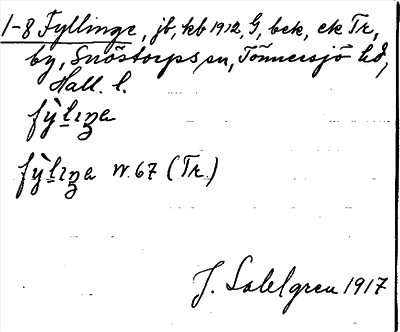 1-8 Fyllinge, jb, kb 1912, G, bek, ek Tr,
by, Snöstorps sn, Tönnersjö hd,
Hall. l.
fỳlıŋa
fỳlıŋa W. 67 (Tr.)
J. Sahlgren 1917